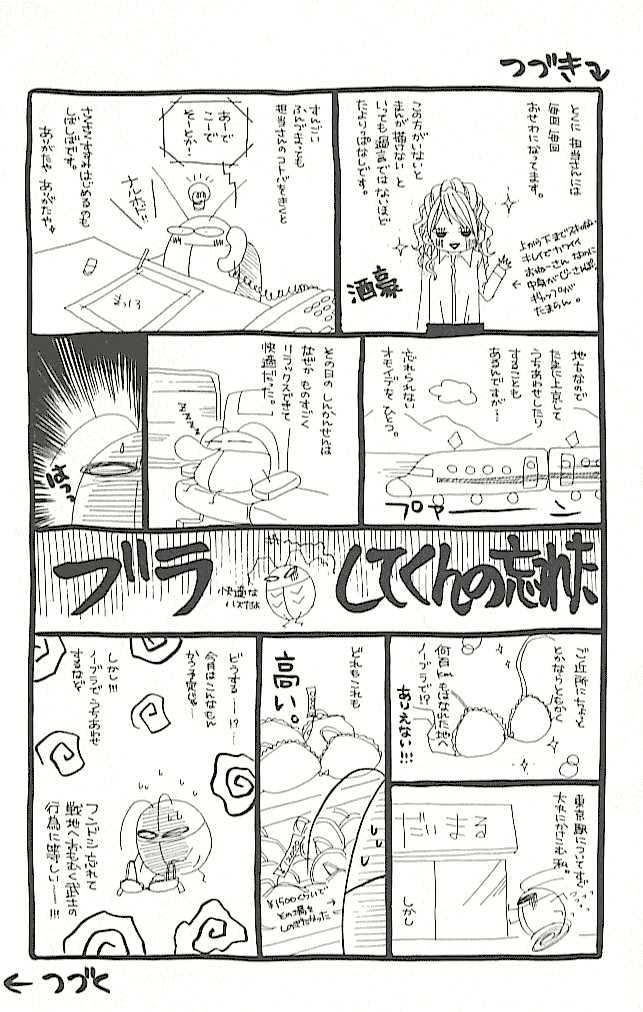 つづき
とくに 担当さんには
毎回 毎回
おせわになってます。
この方がいないと
まんが描けない と
いっても過言ではないほど
たよりっぱなしです。
上から下までスキのない
キレイでカワイイ
おねーさん なのに
ギャップが
たまらん。
酒豪
すんごい
ふんづまっても
担当さんのコトバをきくと
あーで
こーで
そーとか…
ナルホドに!
まっしろ
ありがたや ありがたや
地方なので
たまに上京して
うちあわせしたり
することも
あるんですが…
忘れられない
オモイデを ひとつ。
プァーーン
その日の しんかんせんは
なぜか ものすごく
リラックスできて
快適だった。
ZZZZ
はっ
ブラ
してくんの忘れた
快適な
ハズだよ
ご近所にちょっと
とかならともかく
何百kmもはなれた地へ
ノーブラで!?
ありえない!!!
東京駅についてすぐ
大丸にかけこむ私。
だいまる
しかし
どれもこれも
高い。
¥1500くらいで
その場を
しのぎたかった
どうする……!?
今月はこんなもと
かう予定は…
しかし!!!
ノーブラでうちあわせ
するなど
フンドシ忘れて
戦地へおもむく武士の
行為に等しい……!!!
つづく